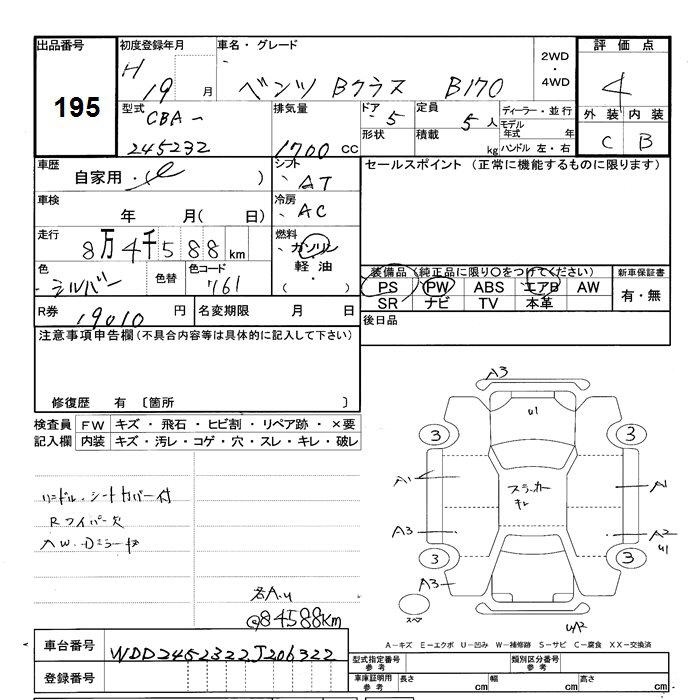 出品番号
195
初度登録年月
H 19 月
車名・グレード
ベンツ Bクラス B170
2WD
・
4WD
評価点
4
外装 内装
C B
型式
CBA-
245232
排気量
1700 cc
ドア 5
形状
定員
5 人
積載 kg
ディーラー・並行
モデル
年式 年
ハンドル 左・右
車歴
自家用・( )
シフト
AT
セールスポイント (正常に機能するものに限ります)
車検
年 月( 日)
冷房
AC
走行
8万4千588km
燃料
・ガソリン
軽油
( ・ )
色
シルバー
色替
色コード
761
装備品(純正品に限り○をつけてください)
PS PW ABS エアB AW
SR ナビ TV 本革
新車保証書
有・無
R券 19010 円
名変期限 月 日
後日品
注意事項申告欄(不具合内容等は具体的に記入して下さい)
修復歴 有 〔箇所 〕
検査員 FW キズ・飛石・ヒビ割・リペア跡・×要
記入欄 内装 キズ・汚レ・コゲ・穴・スレ・キレ・破レ
ハンドル・シートカバー付
Rワイパー欠
AW・Dミラーキズ
84588km
A3
U1
3 3
A1 A1
A3 A2
U1
3 3
A3
スペア
A-キズ E-エクボ U-凹み W-補修跡 S-サビ C-腐食 XX-交換済
車台番号 WDD2452322J206322
登録番号
型式指定番号
参考
類別区分番号
参考
車庫証明用
参考
長さ cm 幅 cm 高さ cm